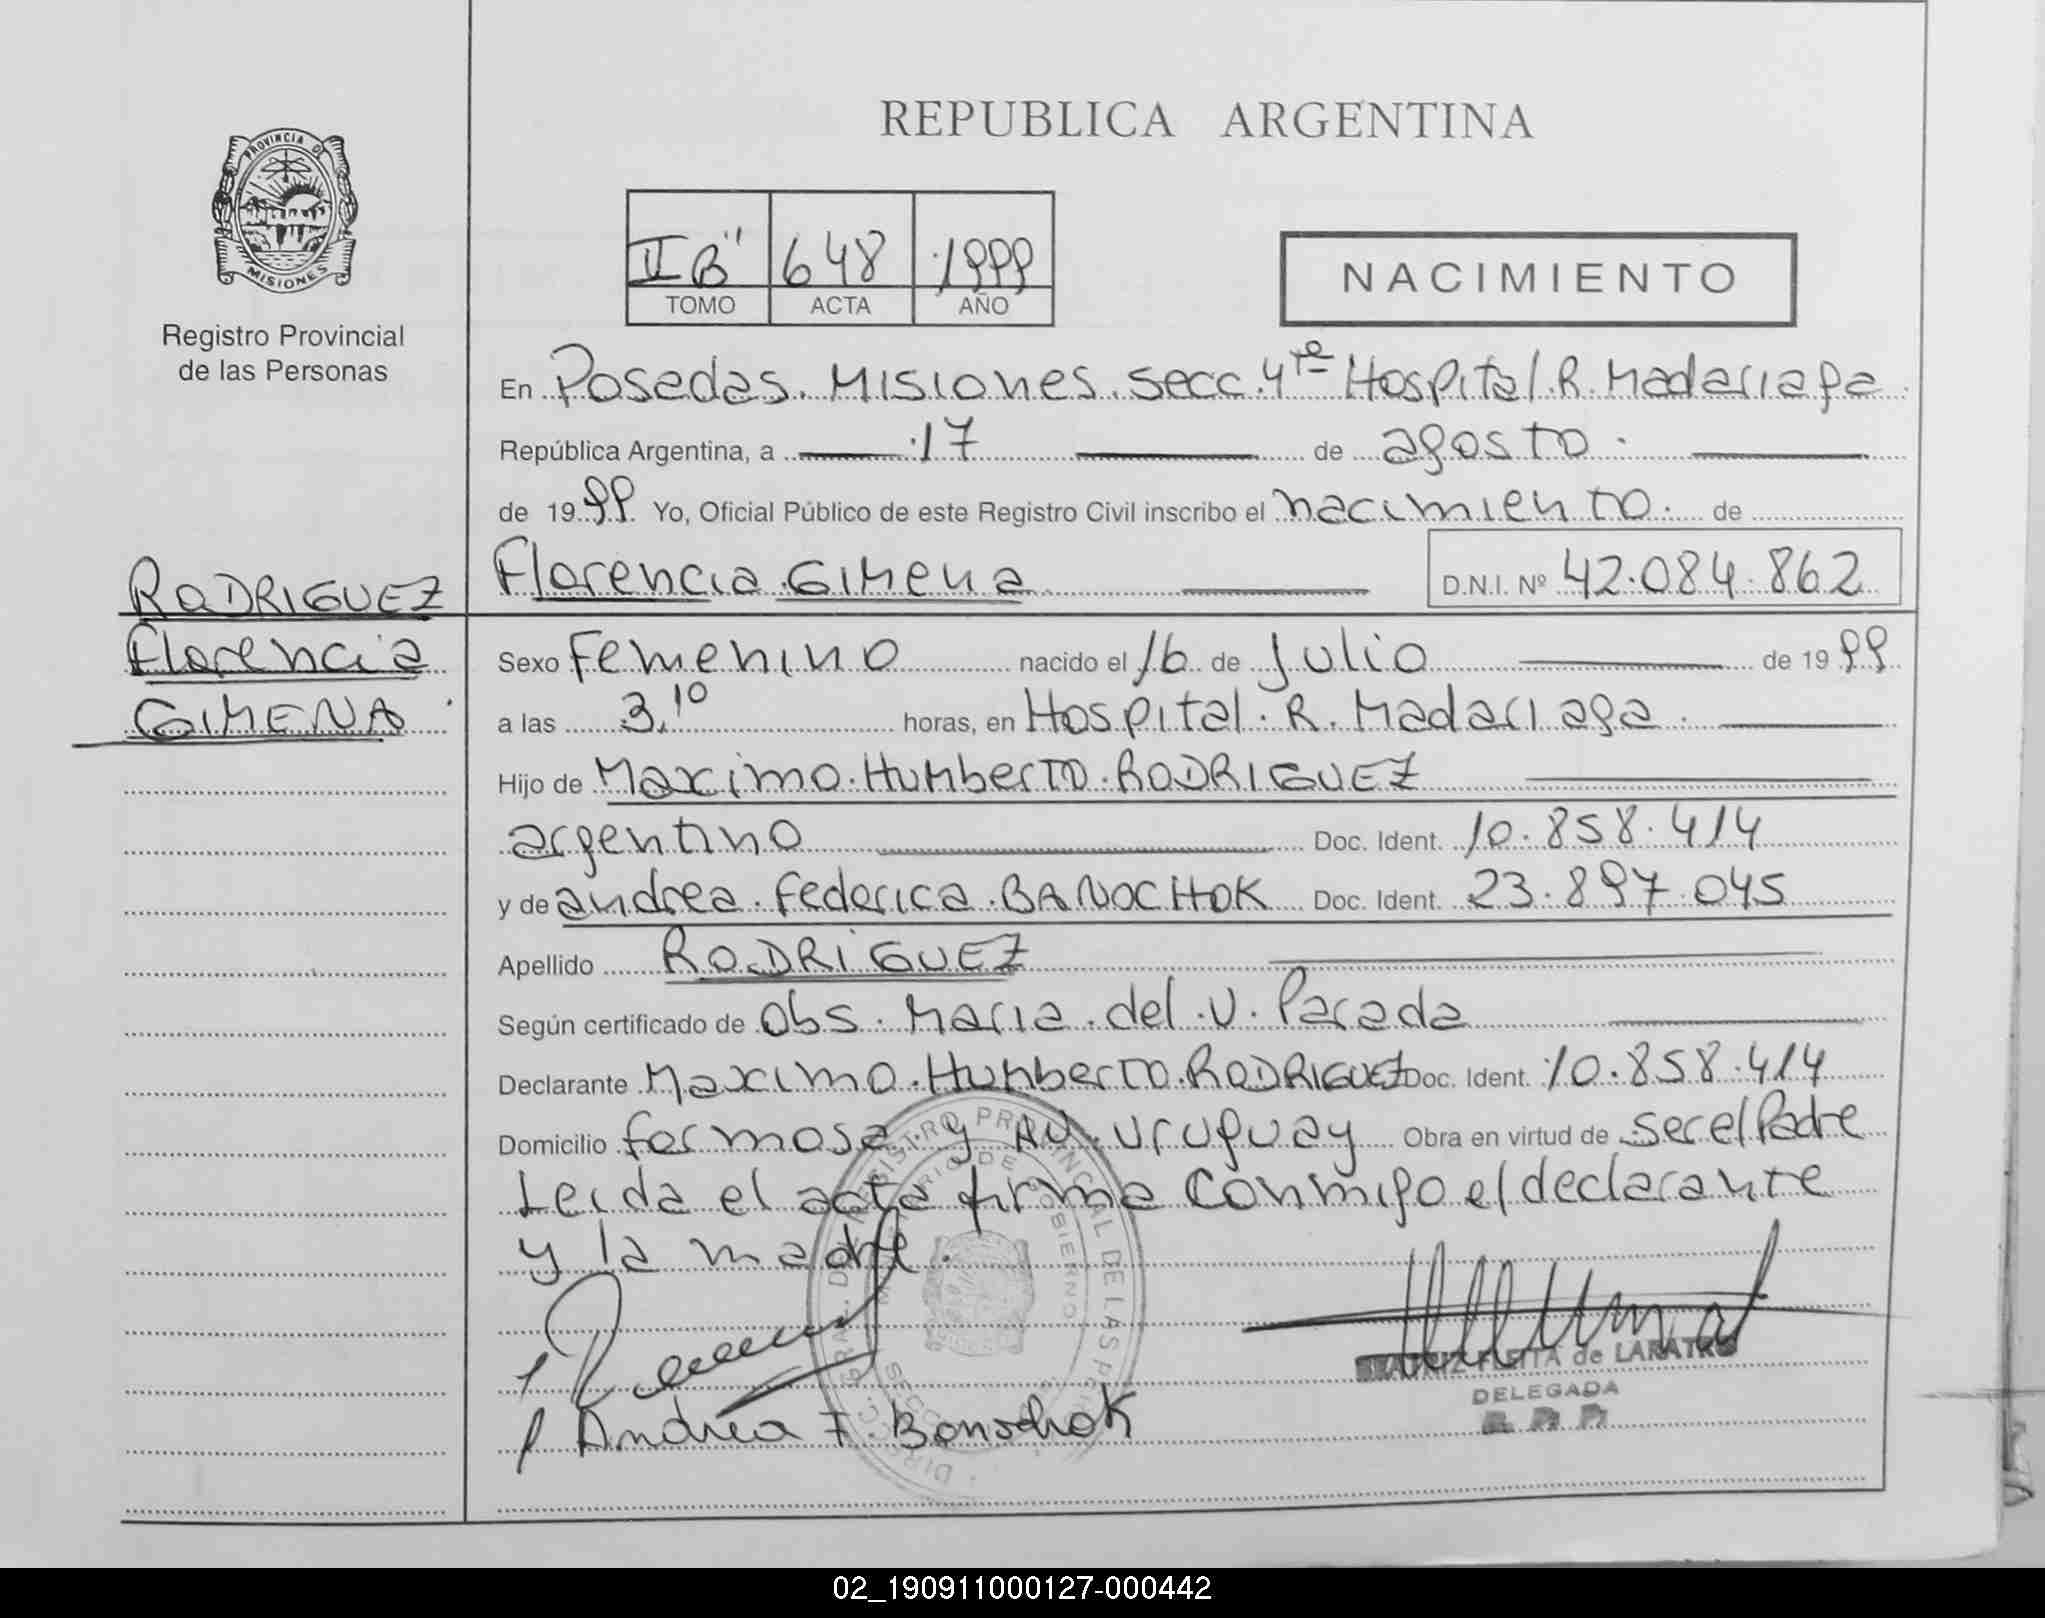 REPUBLICA ARGENTINA
PROVINCIA DE
MISIONES
Registro Provincial
de las Personas
II B" 648 1999
TOMO ACTA AÑO
NACIMIENTO
En Posadas. Misiones. secc. 4ta Hospital. R. Madariaga
República Argentina, a 17 de agosto.
de 1999 Yo, Oficial Público de este Registro Civil inscribo el nacimiento. de
Florencia Gimena D.N.I. Nº 42.084.862
RODRIGUEZ
Florencia
GIMENA
Sexo Femenino nacido el 16 de Julio de 1999
a las 3.10 horas, en Hospital. R. Madariaga.
Hijo de Maximo. Humberto. RODRIGUEZ
argentino Doc. Ident. 10.858.414
y de andrea. Federica. BANOCHOK Doc. Ident. 23.897.045
Apellido RODRIGUEZ
Según certificado de Obs. Maria. del. V. Parada
Declarante Maximo. Humberto. RODRIGUEZ Doc. Ident. 10.858.414
Domicilio formosa y AV. Uruguay Obra en virtud de ser el Padre
Leida el acta firma conmigo el declarante
y la madre.
Andrea F. Bonochok
BEATRIZ FLEITA de LARATRO
DELEGADA
02_190911000127-000442